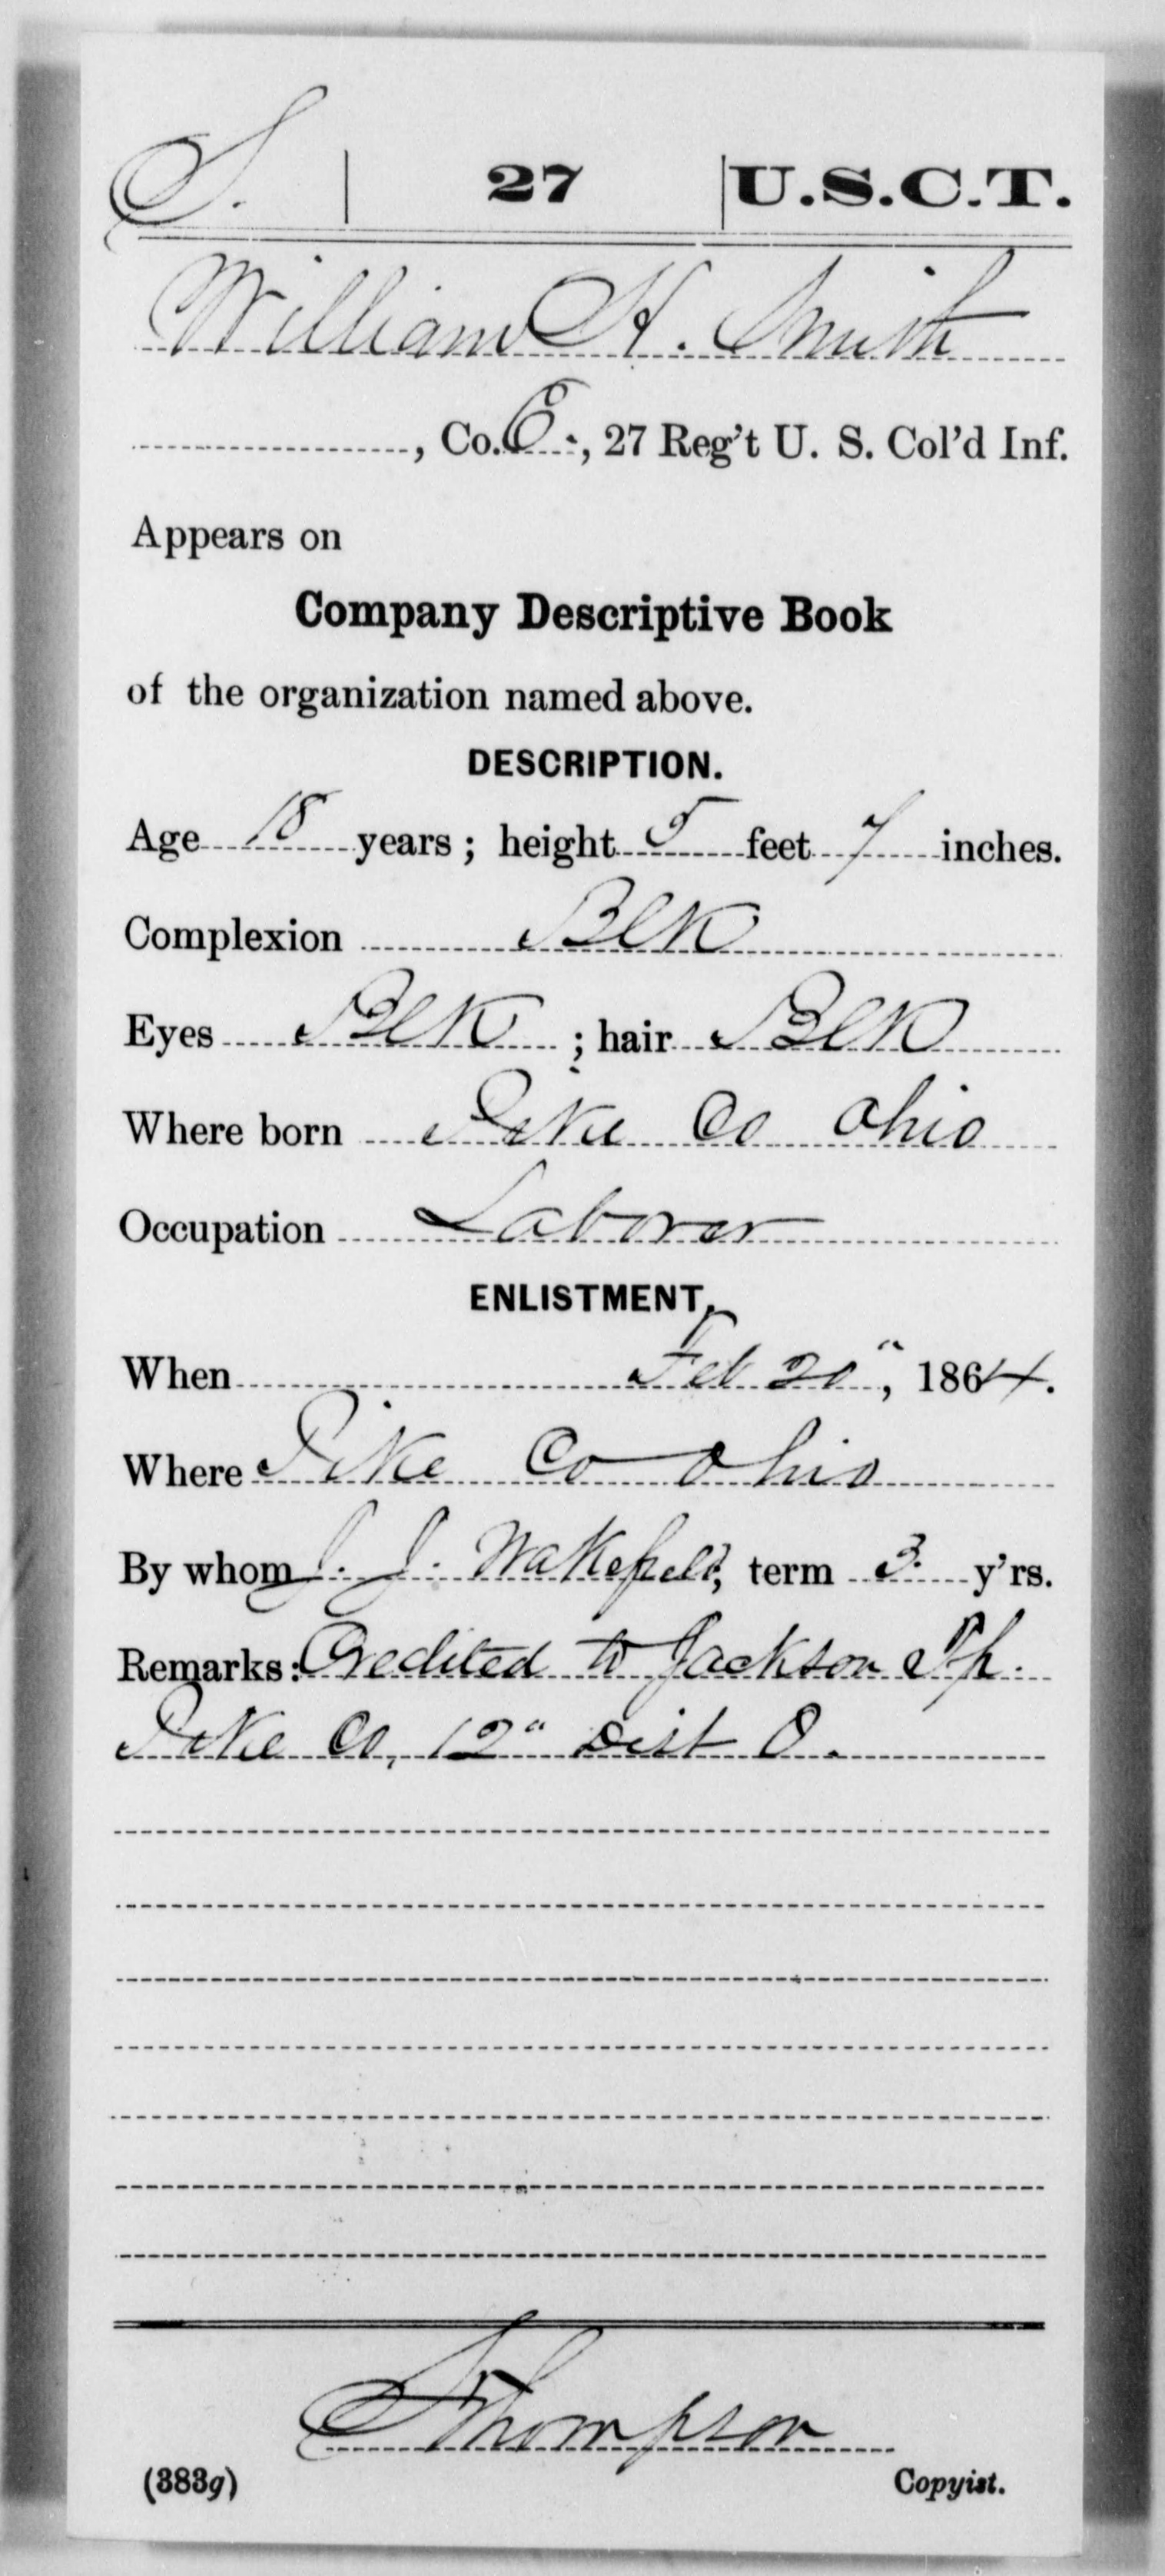 S. | 27 | U.S.C.T.
William H. Smith
, Co. E., 27 Reg't U. S. Col'd Inf.
Appears on
Company Descriptive Book
of the organization named above.
DESCRIPTION.
Age 18 years; height 5 feet 7 inches.
Complexion Blk
Eyes Blk ; hair Blk
Where born Pike Co Ohio
Occupation Laborer
ENLISTMENT.
When Feb 20", 1864.
Where Pike Co Ohio
By whom J. J. Wakefield, term 3 y'rs.
Remarks: Credited to Jackson Tp.
Pike Co, 12" Dist O.
Thompson
(383g) Copyist.